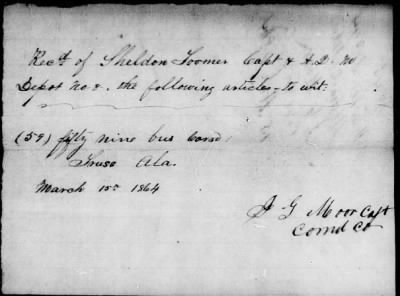 Recd of Sheldon Toomer Capt & A. D. no
Depot no 2. the following articles - to wit:
(59) fifty nine bus corn
Ala.
March 1st 1864
J G Moor Capt
Comd Co